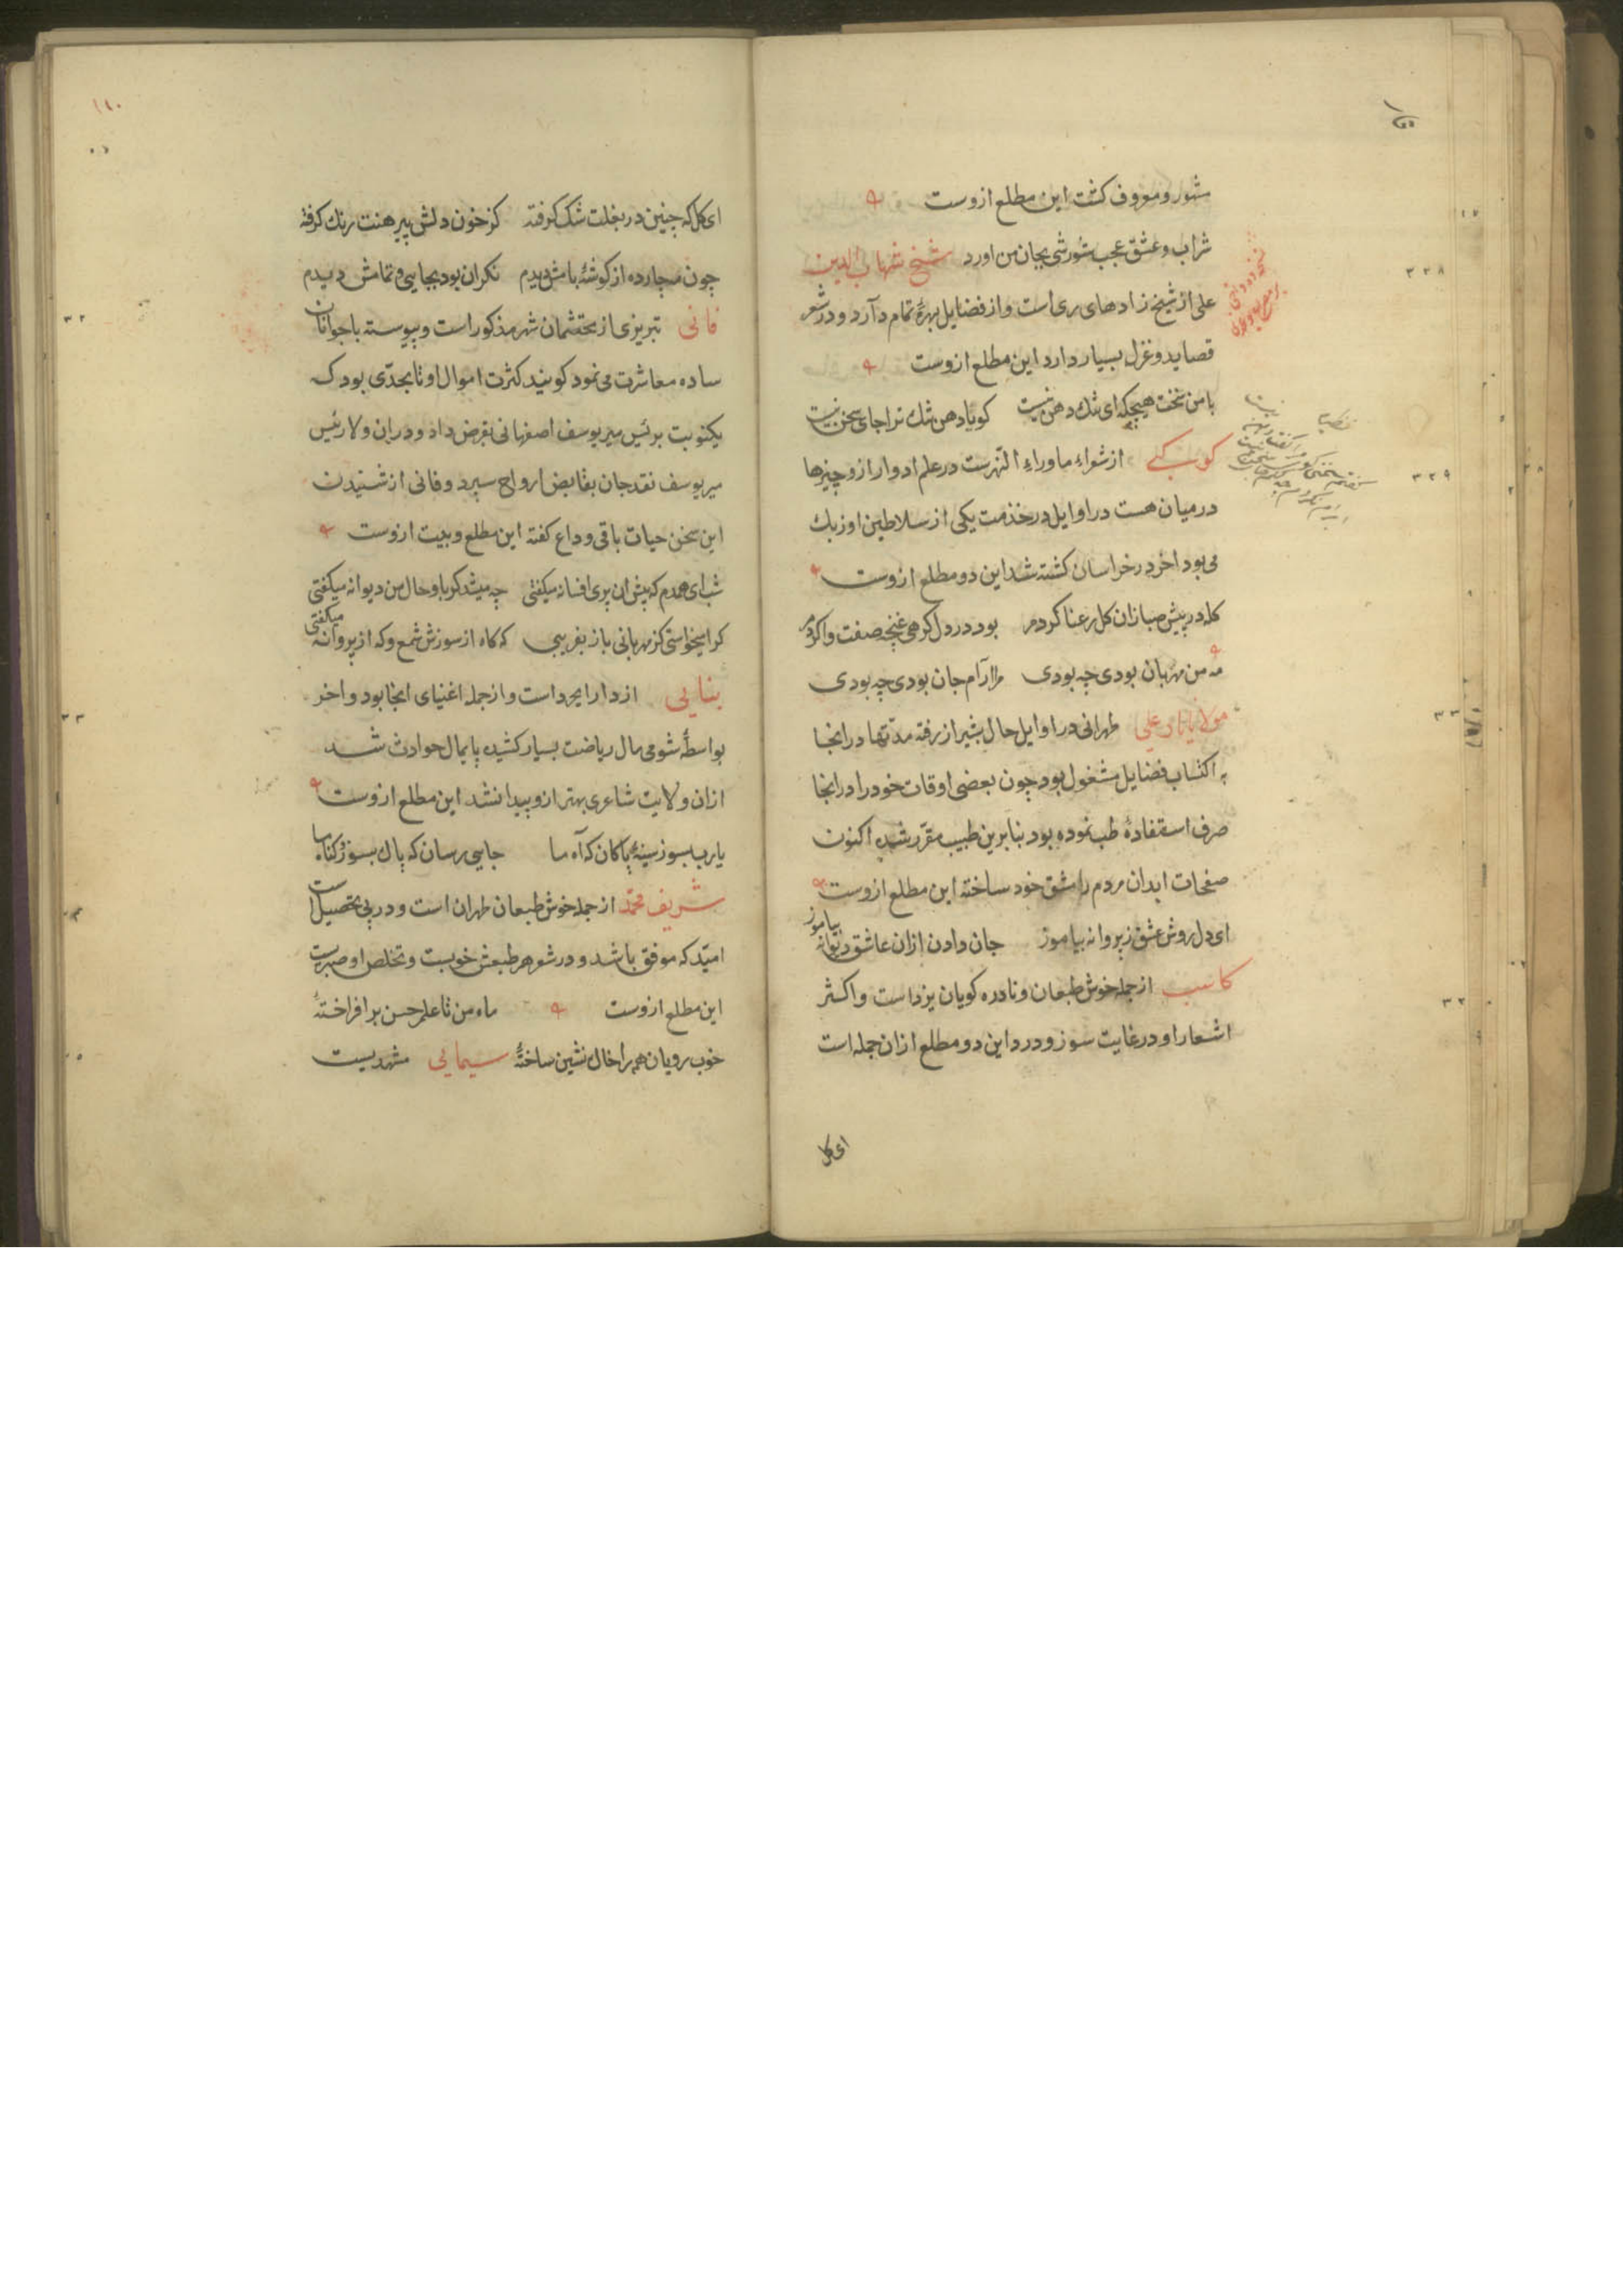 مشهور و معروف کشت این مطلع ازوست
شراب و عشق عجب شورشی بجان من اورد شیخ شهاب الدین
علی از شیخ زادهای ری است و از فضایل بهرهٔ تمام دارد و در شعر
قصاید و غزل بسیار دارد این مطلع ازوست
با من سخنت هیچکه ای تنك دهن نیست کویا دهن تنك ترا جای سخن نیست
کوکبی از شعراء ماوراء النهرست در علم ادوار ازو چیزها
در میان هست در اوایل در خذمت یکی از سلاطین اوزبك
می بود اخر در خراسان کشته شد این دو مطلع ازوست
کله در پیش صبا زان کل رعنا کردم بود در دل کرهی غنچه صفت وا کردم
مه من مهربان بودی چه بودی مرا آرام جان بودی چه بودی
مولانا علی طهرانی در اوایل حال بشیراز رفته مدتها در انجا
به اکتساب فضایل مشغول بود چون بعضی اوقات خود را در انجا
صرف استفادهٔ طب نموده بود بنابرین طبیب مقرر شده اکنون
صفحات ابدان مردم را مشق خود ساخته این مطلع ازوست
ای دل روش عشق ز پروانه بیاموز جان دادن ازان عاشق دیوانه بیاموز
کاسب از جمله خوش طبعان و نادره کویان یزد است و اکثر
اشعار او در غایت سوز و درد این دو مطلع ازان جمله است
ای کل
۱۱۰
ای کل که چنین در بغلت تنك کرفته کز خون دلش پیرهنت رنك کرفته
چون مه چارده از کوشهٔ بامش دیدم نکران بود بجایی و تمامش دیدم
فانی تبریزی از محتشمان شهر مذکور است و پیوسته با جوانان
ساده معاشرت می نمود کویند کثرت اموال او تا بحدی بود که
یکنوبت برئیس میر یوسف اصفهانی بقرض داد و دران ولا رئیس
میر یوسف نقد جان بقابض ارواح سپرد و فانی از شنیدن
این سخن حیات باقی وداع کفته این مطلع و بیت ازوست
شب ای همدم که پیش ان پری افسانه میکفتی چه میشد کر باو حال من دیوانه میکفتی
کرا میخواستی کز مهربانی باز بفریبی که کاه از سوزش شمع و که از پروانه میکفتی
بنایی از دارابجرد است و از جمله اغنیای انجا بود و اخر
بواسطهٔ شومی مال ریاضت بسیار کشیده پایمال حوادث شد
ازان ولایت شاعری بهتر ازو پیدا نشد این مطلع ازوست
یارب بسوز سینهٔ پاکان که آه ما جایی رسان که پاك بسوزد کناه ما
شریف محمد از جمله خوش طبعان طهران است و در پی تحصیل است
امید که موفق باشد و در شعر هم طبعش خوبست و تخلص او صبریست
این مطلع ازوست ماه من تا علم حسن بر افراختهٔ
خوب رویان همه را خاك نشین ساختهٔ سیمایی مشهدیست